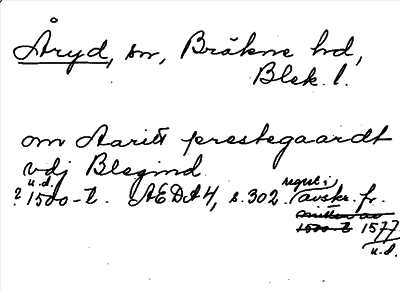 Åryd, sn, Bräkne hd,
Blek. l.
om Aaritt prestegaardt
vdj Blegind
u.d.
? 1500-t. ÆDA 4, s. 302. regist i avskr. fr.
mitten av
1500-t. 1577
u.d.